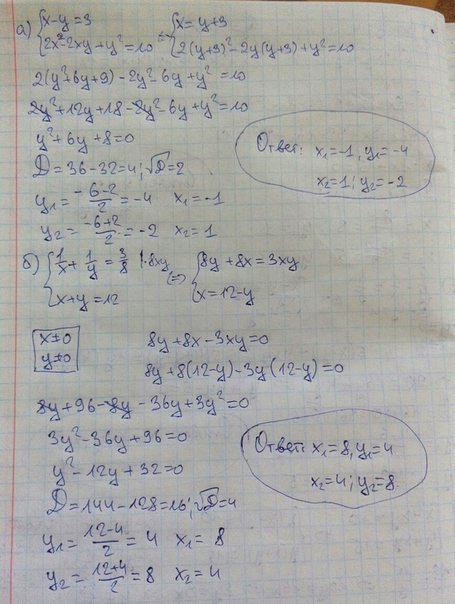 а) {x-y=3 <=> {x=y+3
{2x²-2xy+y²=10 {2(y+3)²-2y(y+3)+y²=10
2(y²+6y+9)-2y²-6y+y²=10
2y²+12y+18-2y²-6y+y²=10
y²+6y+8=0
D=36-32=4; √D=2
y₁=(-6-2)/2=-4 x₁=-1
y₂=(-6+2)/2=-2 x₂=1
Ответ: x₁=-1, y₁=-4
x₂=1; y₂=-2
б) {1/x+1/y=3/8 |·8xy <=> {8y+8x=3xy
{x+y=12 {x=12-y
x≠0
y≠0
8y+8x-3xy=0
8y+8(12-y)-3y(12-y)=0
8y+96-8y-36y+3y²=0
3y²-36y+96=0
y²-12y+32=0
D=144-128=16; √D=4
y₁=(12-4)/2=4 x₁=8
y₂=(12+4)/2=8 x₂=4
Ответ: x₁=8, y₁=4
x₂=4; y₂=8.